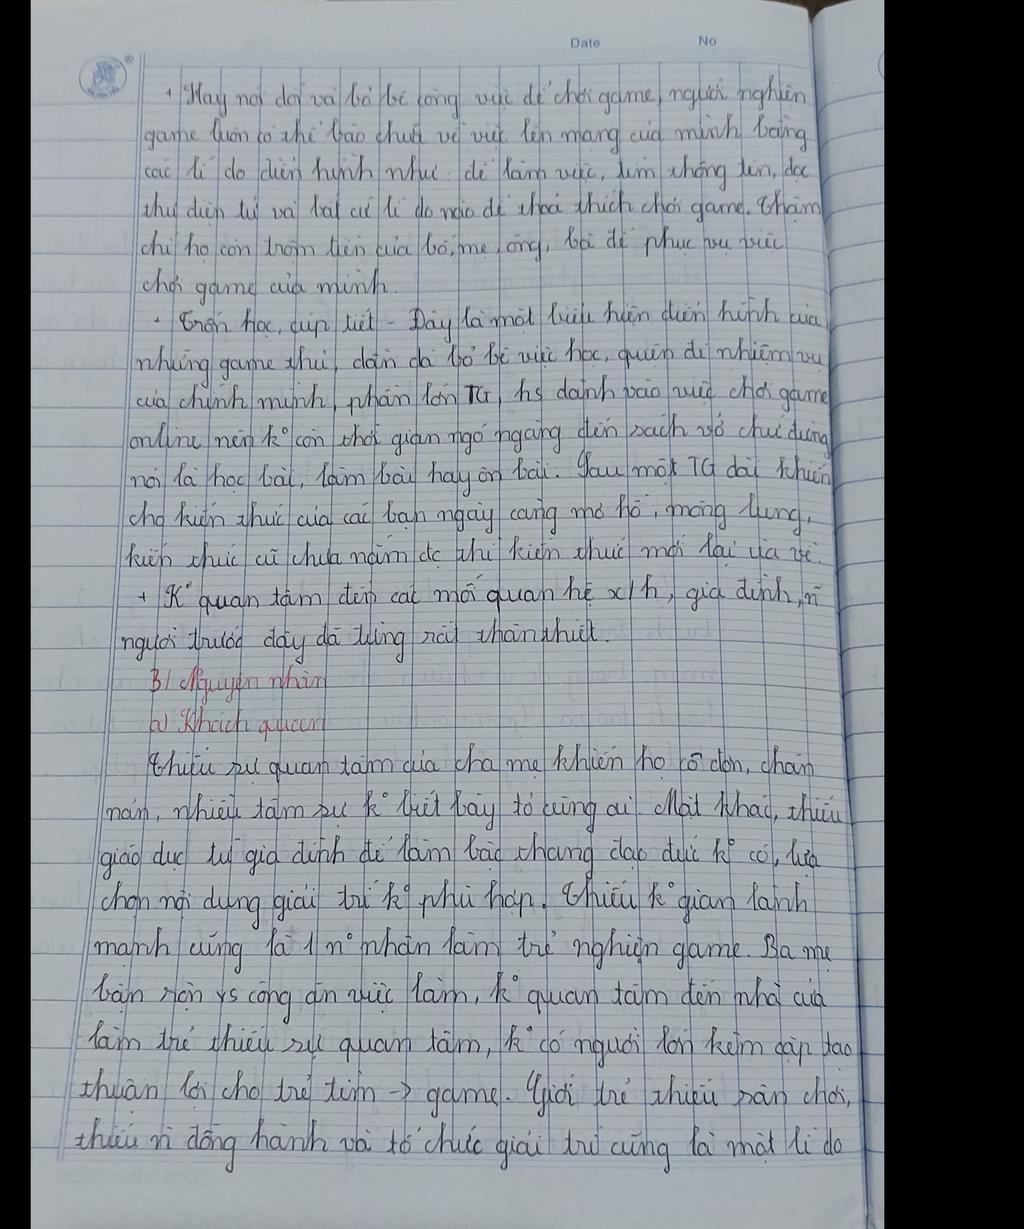 Date No
+ Hay nói dối và bỏ bê công việc để chơi game, người nghiện
game luôn có thể bào chữa về việc lên mạng của mình bằng
các lí do điển hình như: để làm việc, tìm thông tin, đọc
thư điện tử và bất cứ lí do nào để thoả thích chơi game. Thậm
chí họ còn trộm tiền của bố, mẹ, ông, bà để phục vụ việc
chơi game của mình.
+ Trốn học, cúp tiết - Đây là một biểu hiện điển hình của
những game thủ, dần dà bỏ bê việc học, quên đi nhiệm vụ
của chính mình, phần lớn TG, hs dành vào việc chơi game
online nên k° còn thời gian ngó ngàng đến sách vở chứ đừng
nói là học bài, làm bài hay ôn bài. Sau một TG dài khiến
cho kiến thức của các bạn ngày càng mơ hồ, mông lung,
kiến thức cũ chưa nắm đc thì kiến thức mới lại ùa về.
+ K° quan tâm đến các mối quan hệ x/h, gia đình, n~
người trước đây đã từng rất thân thiết.
3/ Nguyên nhân
a) Khách quan
Thiếu sự quan tâm của cha mẹ khiến họ cô đơn, chán
nản, nhiều tâm sự k° biết bày tỏ cùng ai. Mặt khác, thiếu
giáo dục từ gia đình để làm bậc thang đạo đức k° có, lựa
chọn nội dung giải trí k° phù hợp. Thiếu k° gian lành
mạnh cũng là 1 n° nhân làm trẻ nghiện game. Ba mẹ
bận rộn vs công ăn việc làm, k° quan tâm đến nhà cửa
làm trẻ thiếu sự quan tâm, k° có người lớn kèm cặp tạo
thuận lợi cho trẻ tìm → game. Giới trẻ thiếu sân chơi,
thiếu n~ đồng hành và tổ chức giải trí cũng là một lí do